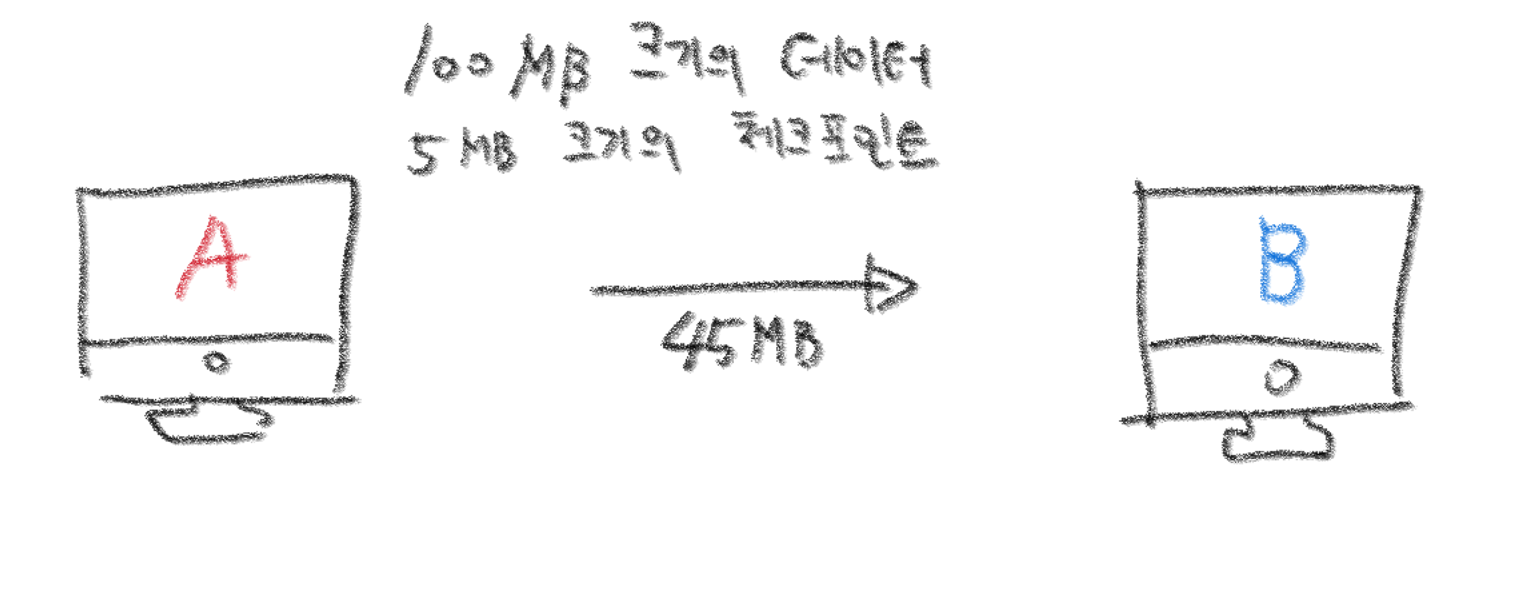 100 MB 크기의 데이터
5 MB 크기의 체크포인트
A
B
45 MB